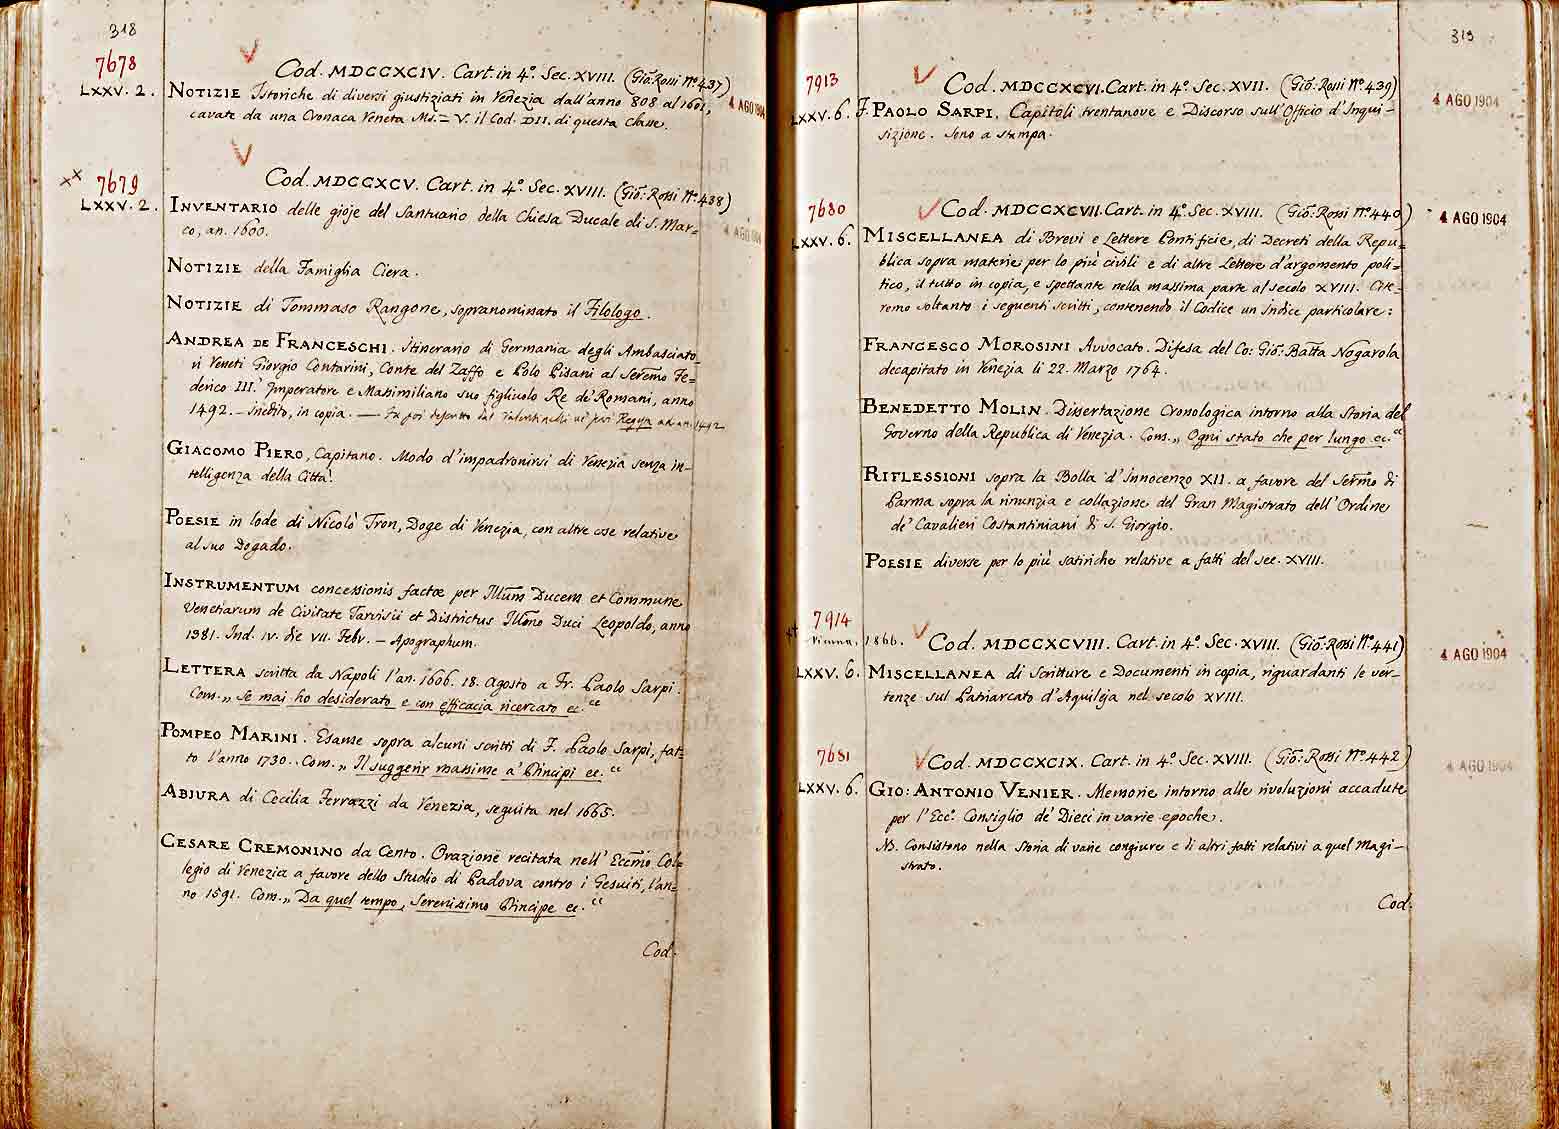 318
7678
LXXV. 2.
Cod. MDCCXCIV. Cart. in 4º. Sec. XVIII. (Gio: Rossi Nº 437)
4 AGO 1904
NOTIZIE Istoriche di diversi giustiziati in Venezia dall'anno 808 al 1601,
cavate da una Cronaca Veneta Ms. = V. il Cod. DII. di questa classe.
7679
LXXV. 2.
Cod. MDCCXCV. Cart. in 4º. Sec. XVIII. (Gio: Rossi Nº 438)
4 AGO 1904
INVENTARIO delle gioje del Santuario della Chiesa Ducale di S. Mar=
co, an. 1600.
NOTIZIE della Famiglia Ciera.
NOTIZIE di Tommaso Rangone, sopranominato il Filologo.
ANDREA DE FRANCESCHI. Itinerario di Germania degli Ambasciato=
ri Veneti Giorgio Contarini, Conte del Zaffo e Polo Pisani al Sermo Fe=
derico III.º Imperatore e Massimiliano suo figliuolo Re de' Romani, anno
1492. – Inedito, in copia. —
GIACOMO PIERO, Capitano. Modo d'impadronirsi di Venezia senza in-
telligenza della Città.
POESIE in lode di Nicolò Tron, Doge di Venezia, con altre cose relative
al suo Dogado.
INSTRUMENTUM concessionis factæ per Illum Ducem et Commune
Venetiarum de Civitate Tarvisii et Districtus Illmo Duci Leopoldo, anno
1381. Ind. IV. die VII. Febr. – Apographum.
LETTERA scritta da Napoli l'an. 1606. 18. Agosto a Fr. Paolo Sarpi.
Com. „ Se mai ho desiderato e con efficacia ricercato ec. “
POMPEO MARINI. Esame sopra alcuni scritti di F. Paolo Sarpi, fat=
to l'anno 1730.. Com. „ Il suggerir massime a' Principi ec. “
ABJURA di Cecilia Ferrazzi da Venezia, seguita nel 1665.
CESARE CREMONINO da Cento. Orazione recitata nell' Eccmo Col=
legio di Venezia a favore dello Studio di Padova contro i Gesuiti, l'an=
no 1591. Com. „ Da quel tempo, Serenissimo Principe ec. “
Cod.
319
7913
LXXV. 6.
Cod. MDCCXCVI. Cart. in 4º. Sec. XVII. (Gio: Rossi Nº 439)
4 AGO 1904
F. PAOLO SARPI. Capitoli trentanove e Discorso sull'Officio d'Inqui-
sizione. Sono a stampa.
7680
LXXV. 6.
Cod. MDCCXCVII. Cart. in 4º. Sec. XVIII. (Gio: Rossi Nº 440)
4 AGO 1904
MISCELLANEA di Brevi e Lettere Pontificie, di Decreti della Repu=
blica sopra materie per lo più civili e di altre Lettere d'argomento poli=
tico, il tutto in copia, e spettante nella massima parte al secolo XVIII. Cite=
remo soltanto i seguenti scritti, contenendo il Codice un Indice particolare:
FRANCESCO MOROSINI Avvocato. Difesa del Co: Gio: Batta Nogarola
decapitato in Venezia li 22. Marzo 1764.
BENEDETTO MOLIN. Dissertazione Cronologica intorno alla Storia del
Governo della Republica di Venezia. Com. „ Ogni stato che per lungo ec. “
RIFLESSIONI sopra la Bolla d'Innocenzo XII. a favore del Sermo di
Parma sopra la rinunzia e collazione del Gran Magistrato dell' Ordine
de' Cavalieri Costantiniani di S. Giorgio.
POESIE diverse per lo più satiriche relative a fatti del sec. XVIII.
7914
Vienna, 1866.
LXXV. 6.
Cod. MDCCXCVIII. Cart. in 4º. Sec. XVIII. (Gio: Rossi Nº 441)
4 AGO 1904
MISCELLANEA di Scritture e Documenti in copia, riguardanti le ver-
tenze sul Patriarcato d'Aquileja nel secolo XVIII.
7681
LXXV. 6.
Cod. MDCCXCIX. Cart. in 4º. Sec. XVIII. (Gio: Rossi Nº 442)
4 AGO 1904
GIO: ANTONIO VENIER. Memorie intorno alle rivoluzioni accadute
per l'Ecco. Consiglio de' Dieci in varie epoche.
NB. Consistono nella Storia di varie congiure e di altri fatti relativi a quel Magi-
strato.
Cod.